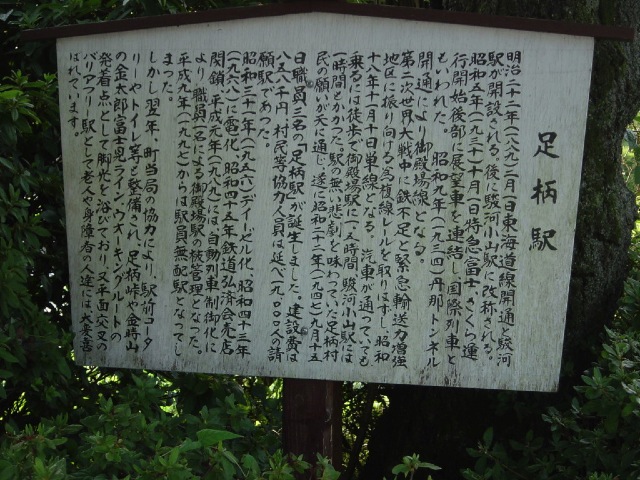 足柄駅
明治二十二年(一八八九)二月一日東海道線開通と駿河
駅が開設される。後に駿河小山駅に改称される。
昭和五年(一九三〇)十月一日特急「富士」「さくら」運
行開始後部に展望車を連結し国際列車と
もいわれた。昭和九年(一九三四)丹那トンネル
開通により御殿場線となる。
第二次世界大戦中、鉄不足と緊急輸送力増強
地区に振り向ける為複線レールを取りはずし、昭和
十八年十一月十日単線となる。汽車が通っていても
乗るには徒歩で御殿場駅に一人時間、駿河小山駅には
一時間かかった。駅の無い悲劇を味わっていた足柄村
民の願いが天に通じ、遂に昭和二十二年(一九四七)九月十五
日職員三名の「足柄駅」が誕生しました。建設費は
八五六千円、村民等協力人員は延べ一九〇〇〇人の請
願駅であった。
昭和三十一年(一九五六)デイーゼル化、昭和四十三年
(一九六八)に電化、昭和四十五年鉄道弘済会売店
閉鎖、平成元年(一九八九)には、自動列車制御化に
より、職員一名による御殿場駅の被管理となった。
平成九年(一九九七)からは駅員無配駅となってし
まった。
しかし翌年、町当局の協力により、駅前ロータ
リーやトイレ等も整備され、足柄峠や金時山
の金太郎富士見ライン、ウオーキングルートの
発着点として脚光を浴びており、又平面交叉の
バリアフリー駅として老人や身障者の人達には大変喜
ばれています。